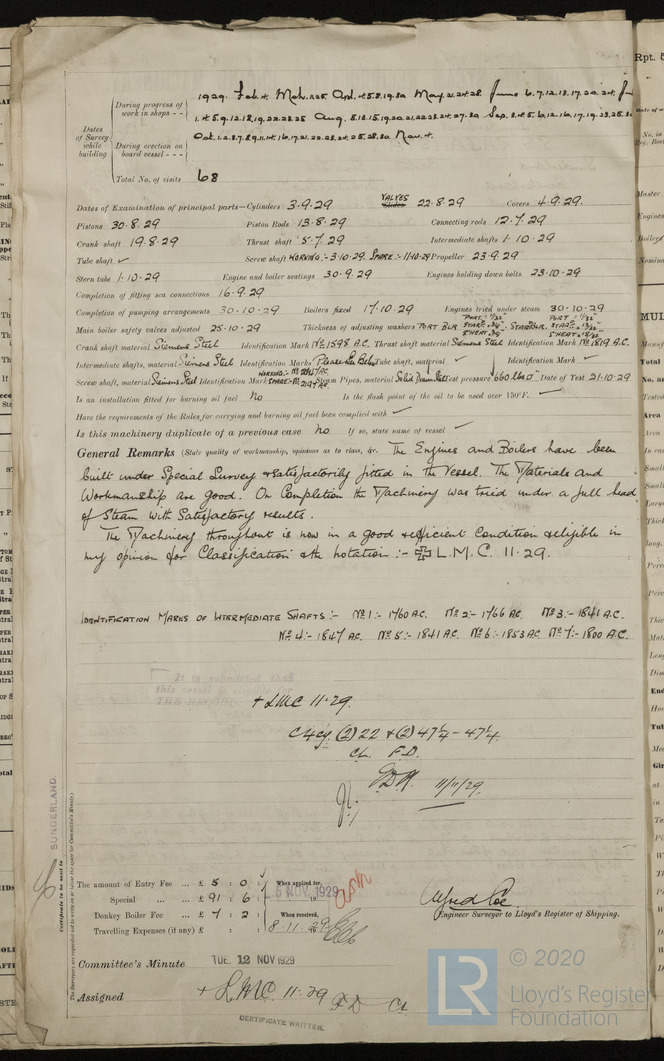 1929. Feb. 4. Mch. 1.25. Apl. 4.5.8.19.30 May. 2.24.28 June 6.7.12.13.17.20.24.
During progress of work in shops - -
1.4.5.9.12.18.19.22.23.25 Aug. 8.13.15.19.20.21.22.23.24.27.30 Sep. 3.4.5.6.12.16.17.19.23.25.
Dates of Survey while building
During erection on board vessel - - -
Oct. 1.2.3.7.8.9.11.14.16.17.21.22.23.24.25.28.30 Nov. 4.
Total No. of visits 68
Dates of Examination of principal parts—Cylinders 3.9.29 VALVES Slides 22.8.29 Covers 4.9.29.
Pistons 30.8.29 Piston Rods 13.8.29 Connecting rods 12.7.29
Crank shaft 19.8.29 Thrust shaft 5.7.29 Intermediate shafts 1.10.29
Tube shaft ✓ Screw shaft WORKING:- 3.10.29. SPARE:- 11.10.29 Propeller 23.9.29
Stern tube 1.10.29 Engine and boiler seatings 30.9.29 Engines holding down bolts 23.10.29
Completion of fitting sea connections 16.9.29
Completion of pumping arrangements 30.10.29 Boilers fixed 17.10.29 Engines tried under steam 30.10.29
Main boiler safety valves adjusted 25.10.29 Thickness of adjusting washers PORT BLR. STARBLR.
Crank shaft material Siemens Steel Identification Mark No 1598 A.C. Thrust shaft material Siemens Steel Identification Mark No 1819 A.C.
Intermediate shafts, material Siemens Steel Identification Marks Please See Below Tube shaft, material ✓ Identification Mark ✓
Screw shaft, material Siemens Steel Identification Mark WORKING:- SPARE:- No 2197 AC. Steam Pipes, material Solid Drawn Steel Test pressure 660 lbs □" Date of Test 21.10.29
Is an installation fitted for burning oil fuel No Is the flash point of the oil to be used over 150°F. ✓
Have the requirements of the Rules for carrying and burning oil fuel been complied with ✓
Is this machinery duplicate of a previous case No If so, state name of vessel ✓
General Remarks (State quality of workmanship, opinions as to class, &c. The Engines and Boilers have been
built under Special Survey & satisfactorily fitted in the Vessel. The Materials and
Workmanship are good. On Completion the Machinery was tried under a full head
of Steam with Satisfactory results.
The Machinery throughout is now in a good & efficient Condition & eligible in
my opinion for Classification & the notation :- ✠ L.M.C. 11.29.
IDENTIFICATION MARKS OF INTERMEDIATE SHAFTS :- No 1:- 1760 A.C. No 2:- 1766 AC. No 3:- 1841 A.C.
No 4:- 1847 AC. No 5:- 1841 AC. No 6:- 1853 AC. No 7:- 1800 A.C.
It is submitted that
this vessel is eligible for
THE RECORD
+ LMC 11.29.
C4cy. (2) 22 & (2) 47¼ - 47¼
CL. F.D.
11/11/29.
SUNDERLAND.
Certificate to be sent to
The Surveyors are requested not to write on or below the space for Committee's Minute.
The amount of Entry Fee ... £ 5 : 0 : When applied for,
Special ... ... £ 91 : 6 : 5 NOV. 1929
Donkey Boiler Fee ... £ 7 : 2 : When received,
Travelling Expenses (if any) £ : : 8.11.29
Alfred
Engineer Surveyor to Lloyd's Register of Shipping.
Committee's Minute TUE. 12 NOV 1929
Assigned + L.M.C. 11.29 F D CL
CERTIFICATE WRITTEN.
LR © 2020
Lloyd's Register
Foundation
Rpt. 5